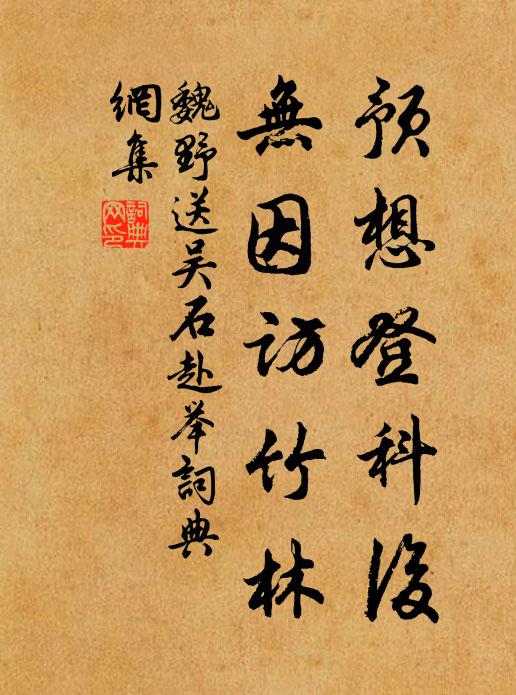 預想登科後
無因訪竹林
魏野送吴石赴举詞典
網集
詞典
网印